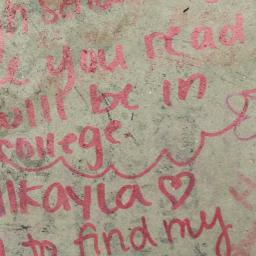 you read
will be in
college.
Mikayla ♡
to find my